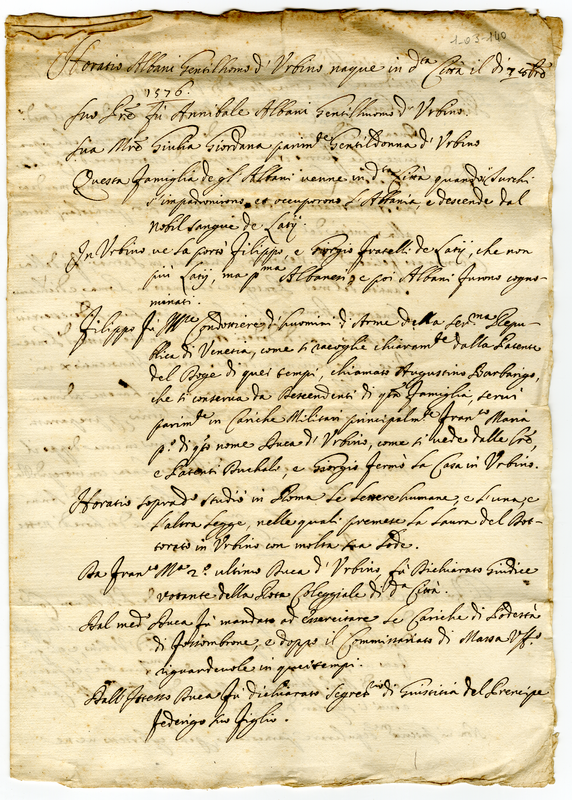 103-140
Horatio Albani Gentilhomo d'Urbino naque in d.ta Città il dì 7 8bre
1576.
Suo Pre fù Annibale Albani Gentilhuomo d'Urbino.
Sua Mre Giulia Giordana parim.te Gentildonna d'Urbino
Questa famiglia de gl'Albani uenne in d.ta Città quando i Turchi
s'impadronirono, et occuporono l'Albania, e descende dal
nobil sangue de Latij.
In Urbino ue la portò Filippo, e Giorgio fratelli de Latij, che non
più Latij, ma p.ma Albanesi, e poi Albani furono cogno-
minati.
Filippo fù Condottiere d'huomini d'Arme della Ser.ma Repu-
blica di Venetia, come si raccoglie chiaram.te dalla Patente
del Doge di quei tempi, chiamato Augustino Barbarigo,
che si conserua da Descendenti di q.ta famiglia, seruì
parim.te in Cariche Militari principalm.te Fran.co Maria
p.o di q.to nome Duca d'Urbino, come si uede dalle
e Patenti Duchali, e Giorgio fermò la Casa in Urbino.
Horatio soprad.o studiò in Roma le lettere humane, e l'una, e
l'altra legge, nelle quali premesse la laurea del Dot-
torato in Urbino con molta sua lode.
Da Fran.co M.a 2.o ultimo Duca d'Urbino fù dichiarato Giudice
uotante della Rota Colleggiale di d.a Città.
Dal med.o Duca fù mandato ad essercitare le Cariche di Podestà
di Fossombrone, e doppo il Commissariato di Massa Uff.o
riguardeuole in quei tempi.
Dall'istesso Duca fù dichiarato Segret.rio di Giustitia del Prencipe
Federigo suo figlio.